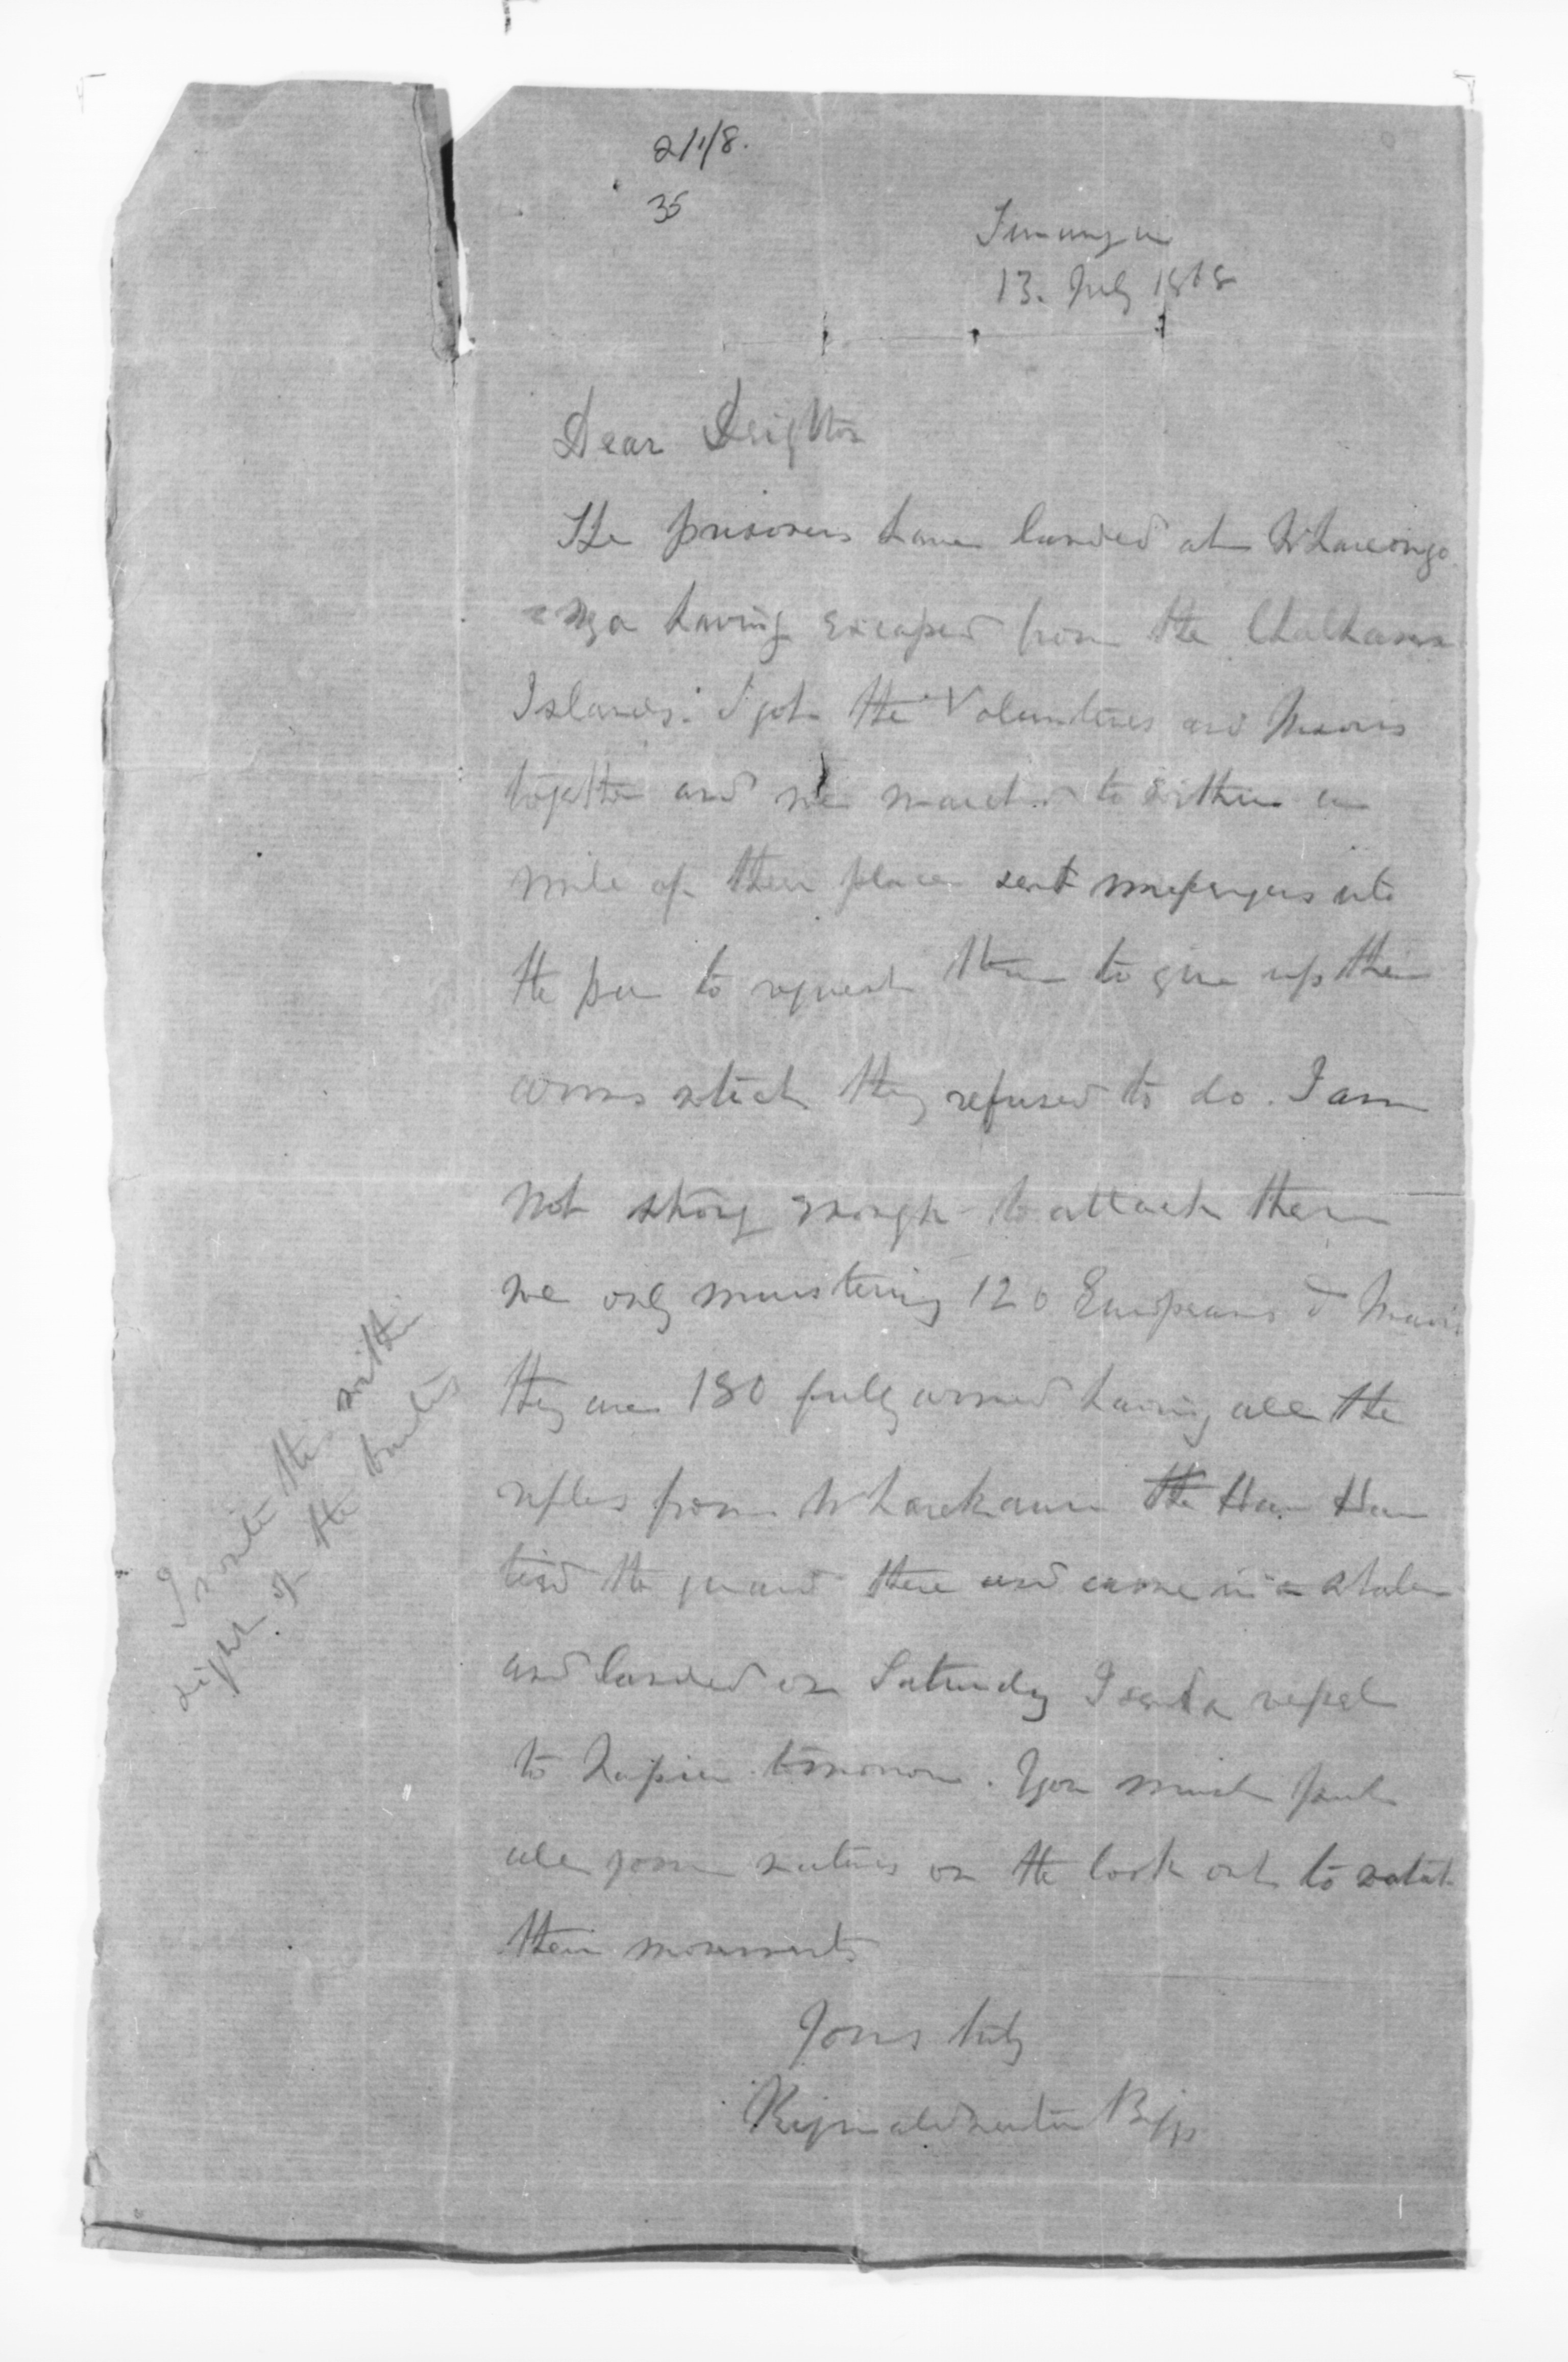 2/1/8.
35
Turanga
13. July 1868
Dear Deighton
The prisoners have landed at Whareongo
= nga having escaped from the Chatham
Islands. I got the Volunteers and Maoris
together and we marched to within a
mile of their place sent messengers into
the paa to request them to give up their
arms which they refused to do. I am
not strong enough to attack them
we only mustering 120 Europeans & Maoris
they are 180 fully armed having all the
rifles from Wharekauri the Hau Hau
tied the guard there and came in a
and landed on Saturday I send a vessel
to Napier tomorrow. You must put
all your natives on the look out to watch
their movements
Yours truly
Reginald Newton Biggs
I write this within
sight of the